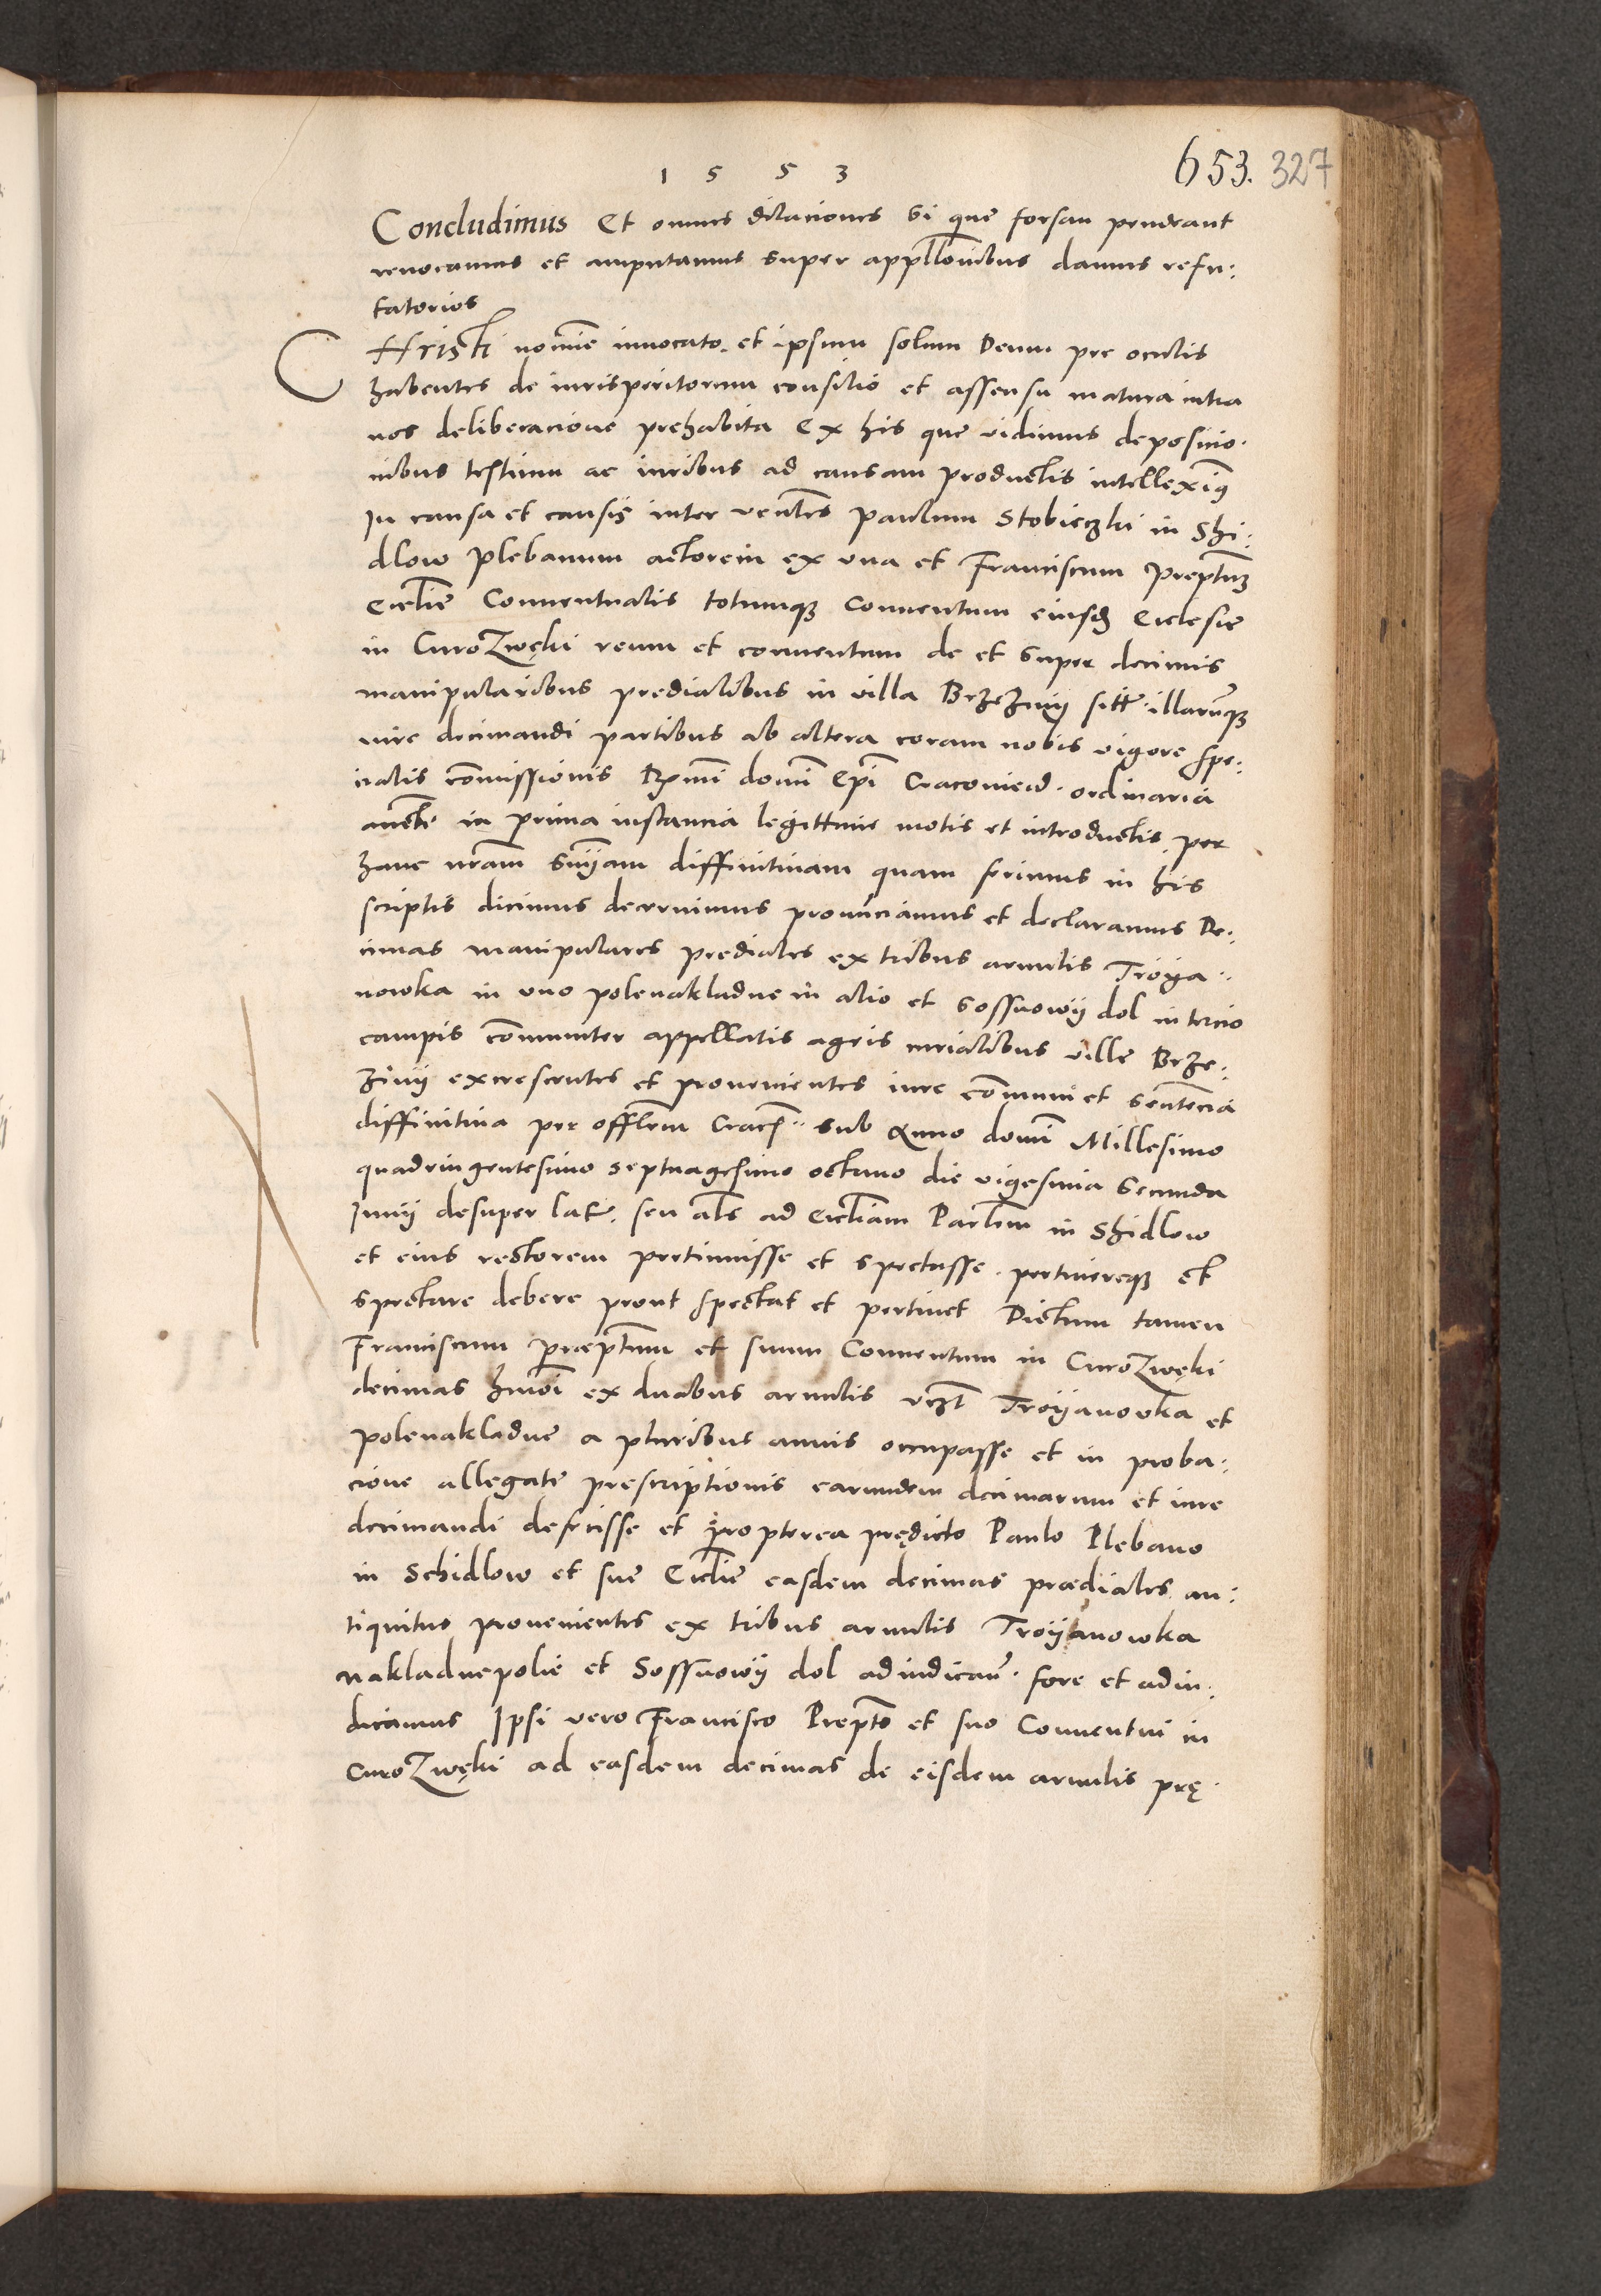 1 5 5 3
653. 327
Concludimus Et omnes dilaciones si que forsan pendeant
revocamus et amputamus super appllonibus damus refu:
tatorios
CHristi nomie invocato et ipsum solum Deum pre oculis
habentes de iurisperitorum consilio et assensu matura intra
nos deliberacione prehabita Ex his que vidimus deposicio.
nibus testium ac iuribus ad causam productis intelleximq
In causa et causis inter ventes paulum Stobieczki in Shi:
dlow plebanum actorem ex una et Franciscum preptum
Ecclie Conventualis totumq conventum eiusd Ecclesie
in CuroZwęki reum et conventum de et super decimis
manipularibus predialibus in villa BrzeZnij sitt. illarumq
iure decimandi partibus ab altera coram nobis vigore spe:
cialis commissionis Rmi domi Epi Cracovien. ordinaria
aucte in prima instancia legittime motis et introductis. per
hanc nram snyam diffinitivam quam ferimus in his
scriptis dicimus decernimus pronunciamus et declaramus De:
cimas manipulares prediales ex tribus araculis Troya:
nowka in uno polenakladne in alio et Sossnowij dol in tercio
campis communiter appellatis agris curialibus ville Brze:
zinij excrescentes et provenientes iure communi et sentencia
diffinitiva per offlem Crac. sub Anno domi Millesimo
quadringentesimo septuagesimo octavo die vigesima secunda
Iunij desuper lat. seu als ad Eccliam Parlem in Shidlow
et eius rectorem pertinuisse et spectasse. pertinereq et
spectare debere prout spectat et pertinet Dictum tamen
Franciscum præptum et suum Conventum in CuroZwęki
decimas hmoi ex duabus araculis vczt Troijanovka et
polenakladne a pluribus annis occupasse et in proba:
cione allegate prescriptionis earundem decimarum et iure
decimandi defecisse et propterea prędicto Paulo Plebano
in Schidlow et sue Ecclie easdem decimas prædiales an:
tiquitus provenientes ex tribus araculis Troijanowka
nakladnepolie et Sossnowij dol adiudican. fore et adiu:
dicamus Ipsi vero Francisco Prepto et suo Conventui in
CuroZwęki ad easdem decimas de eisdem araculis prę.